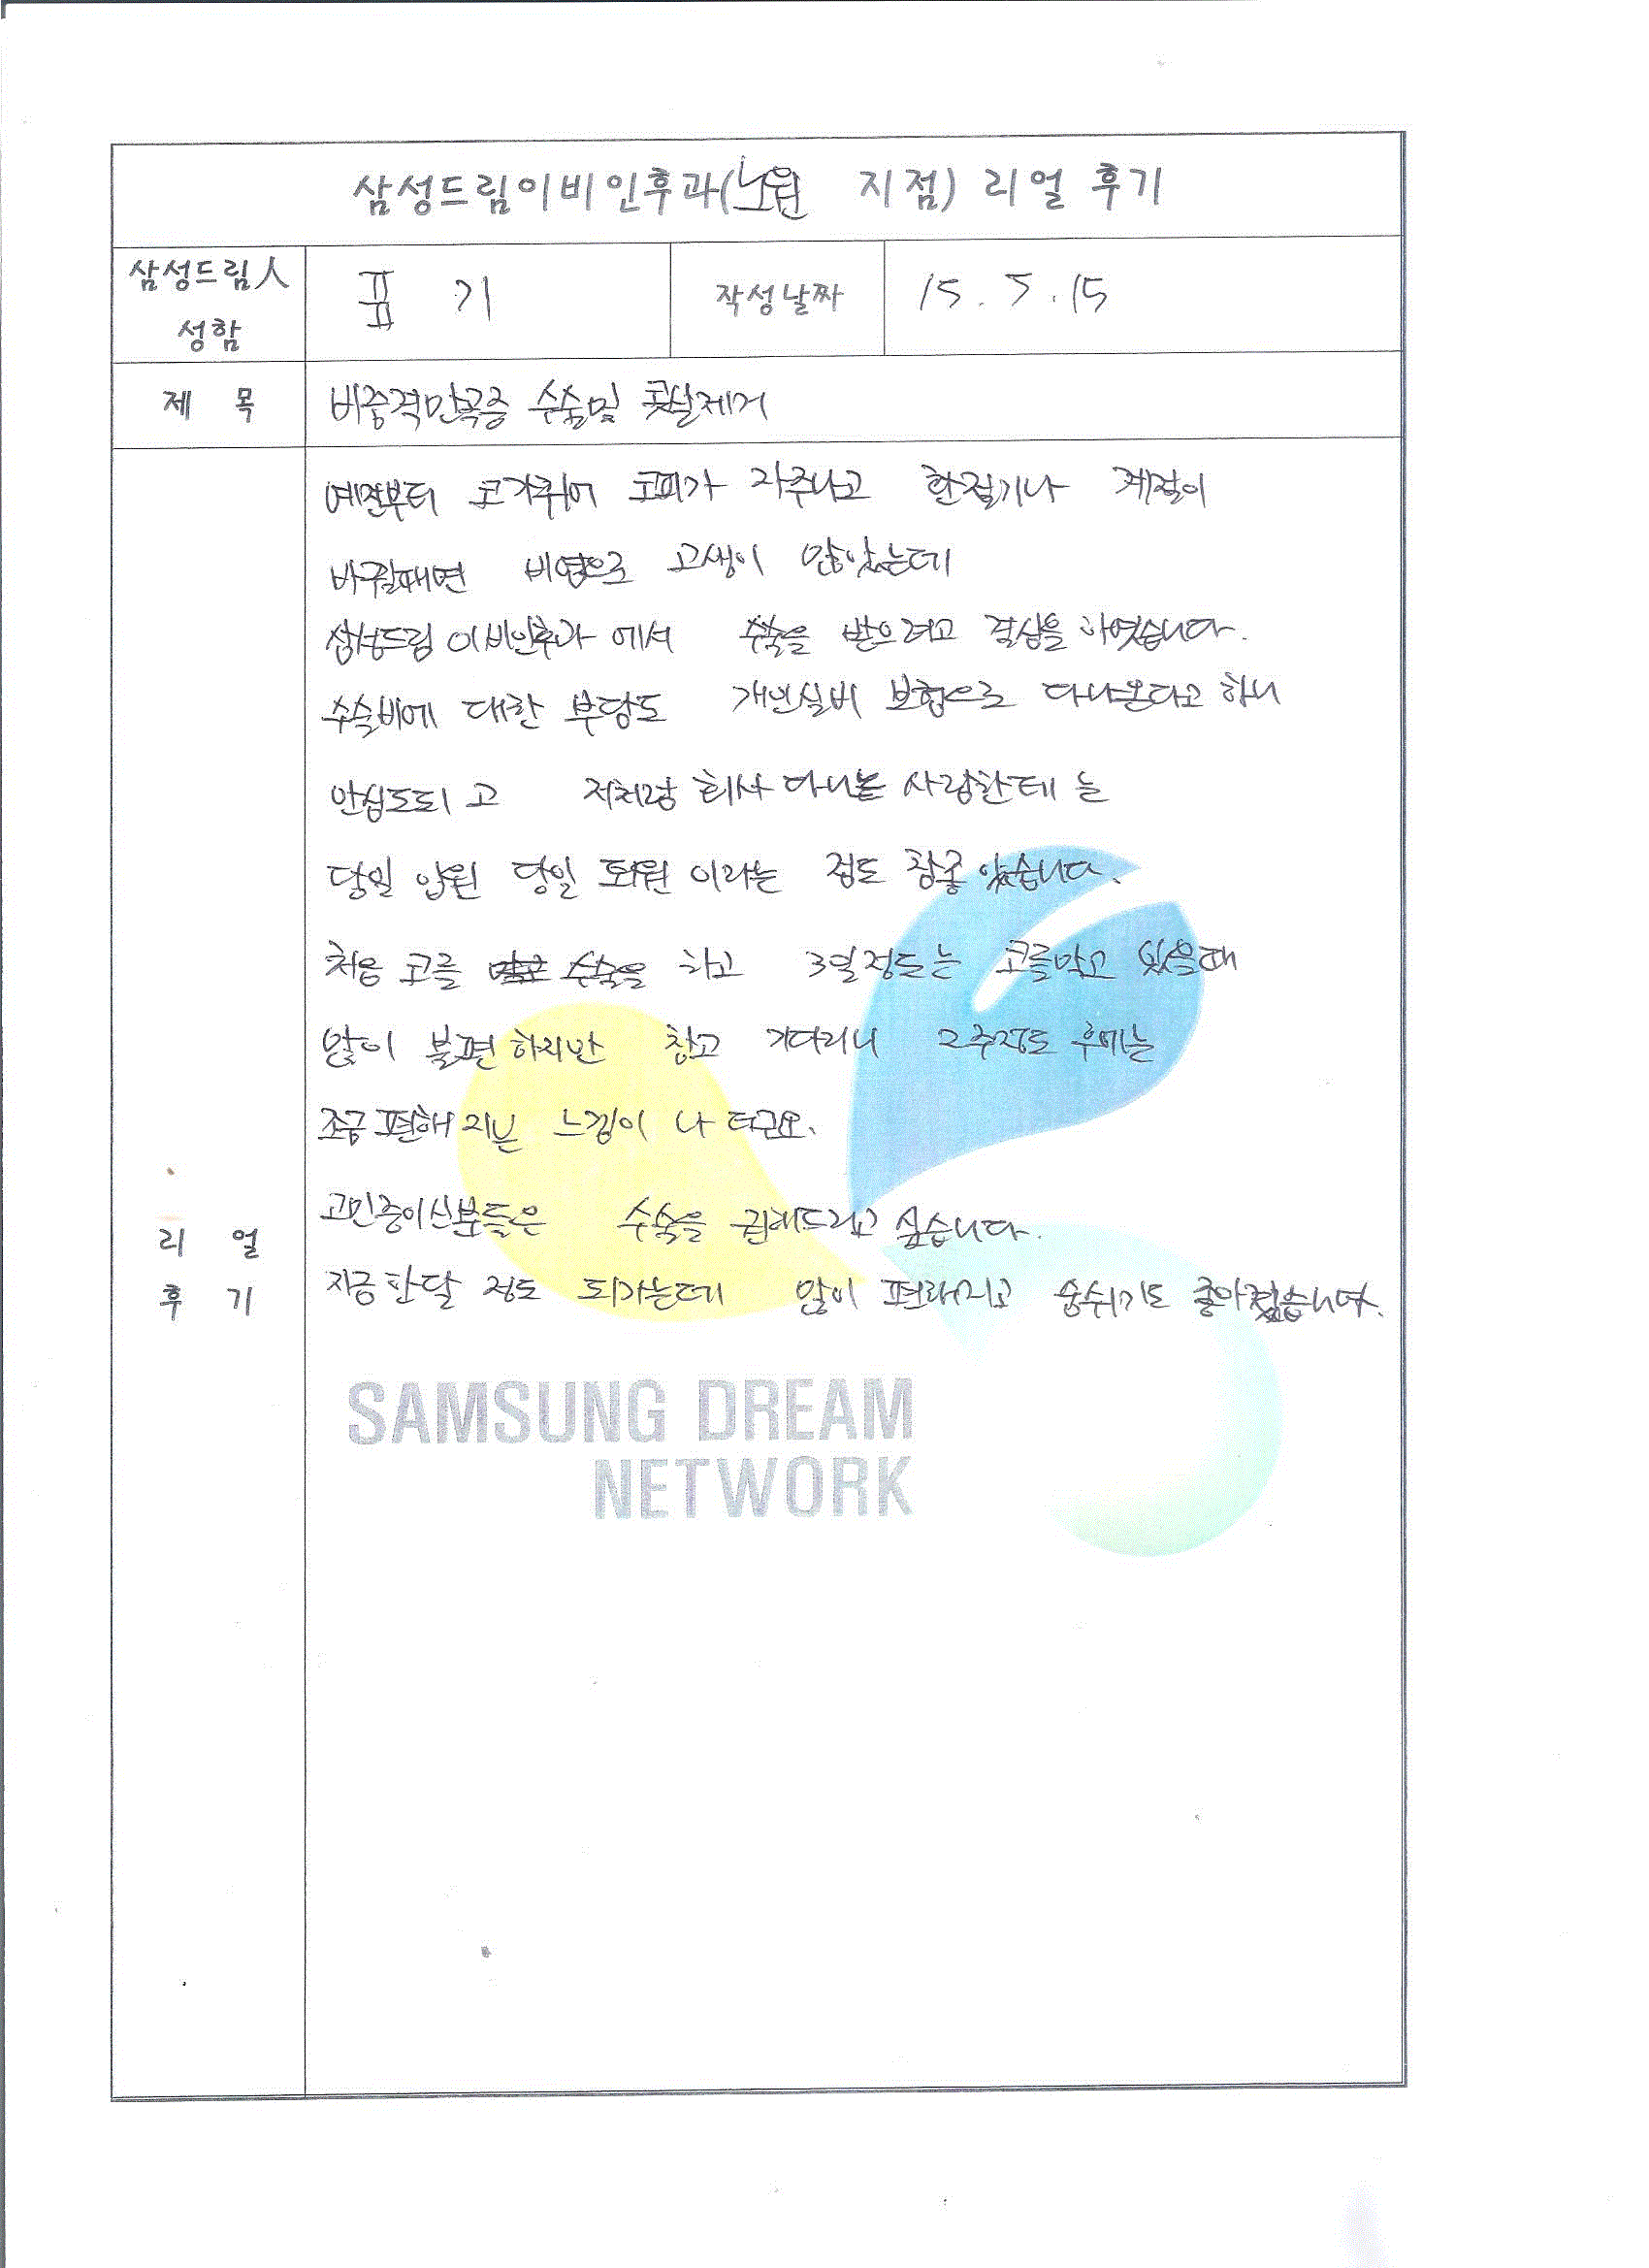 삼성드림이비인후과(노원 지점) 리얼 후기
삼성드림人 성함
표 기
작성날짜
15. 5. 15
제 목
비중격만곡증 수술및 콧살제거
예전부터 코가휘어 코피가 자주나고 환절기나 계절이
바뀔때면 비염으로 고생이 많았는데
삼성드림 이비인후과 에서 수술을 받으려고 결심을 하였습니다.
수술비에 대한 부담도 개인실비 보험으로 다나온다고 하니
안심도되고 저처럼 회사 다니는 사람한테 는
당일 입원 당일 퇴원 이라는 점도 참좋 았습니다.
처음 코를 수술을 하고 3일정도는 코를막고 있을때
많이 불편하지만 참고 기다리니 2주정도 후에는
조금 편해 지는 느낌이 나 더군요.
고민중이신분들은 수술을 권해드리고 싶습니다.
지금 한달 정도 되가는데 많이 편해지고 숨쉬기도 좋아졌습니다.
리 얼
후 기
SAMSUNG DREAM
NETWORK